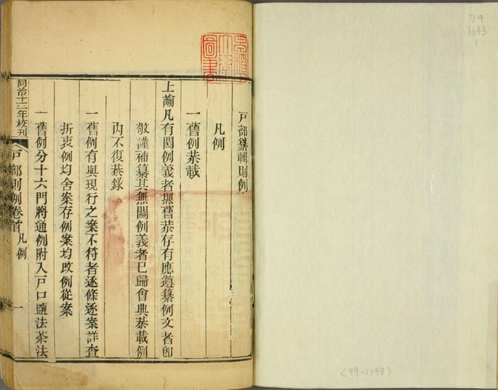 戶部纂輯則例
凡例
一舊例恭載
上諭凡有關例義者無舊恭存有應遵纂例文者卽
敬謹補纂其無關例義者已歸會典恭載例
內不復恭錄
一舊例有與現行之案不符者逐條逐案詳查
折衷例均舍案存例案均改例從案
一舊例分十六門將通例附入戶口鹽法茶法
同治十二年校刊
戶部則例卷首 凡例
一